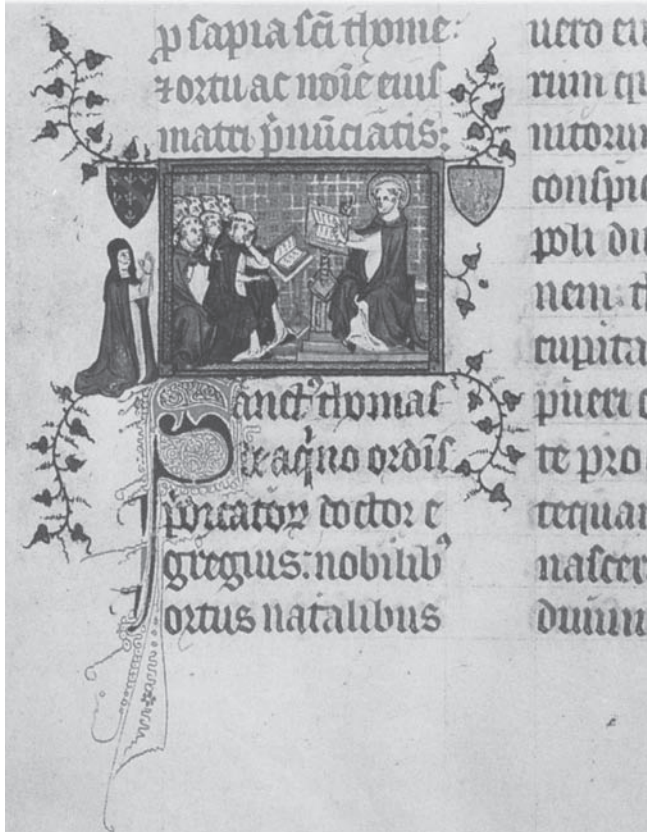 ꝑsapia sc̄i thome:
⁊ ortu ac noīe eius
matri p̄nūciatis:
Sanctꝰ thomas
de aq̇no ordīs
p̄dicatoꝝ doctor e
gregius: nobilibꝰ
ortus natalibus
uero
rum
conspic
poli
nem
cupita
pueri
te pro
tequam
nascer